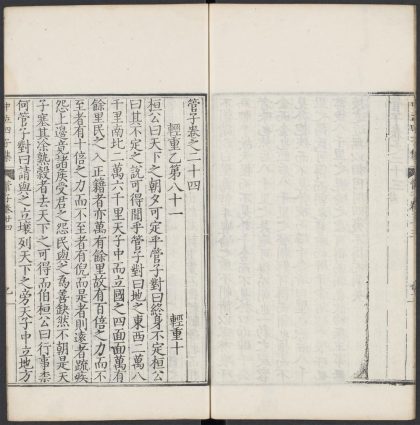 管子卷之二十四
輕重乙第八十一　輕重十
桓公曰天下之朝夕可定乎管子對曰終身不定桓公
曰其不定之說可得聞乎管子對曰地之東西二萬八
千里南北二萬六千里天子中而立國之四面面萬有
餘里民之入正籍者亦萬有餘里故有百倍之力而不
至者有十倍之力而不至者有倪而是者則遠者疏疾
怨上邊竟諸侯受君之怨民與之為善缺然不朝是天
子塞其涂熟穀者去天下之可得而伯桓公曰行事柰
何管子對曰請與之立壤列天下之旁天子中立地方
中立四子集
管子卷廿四